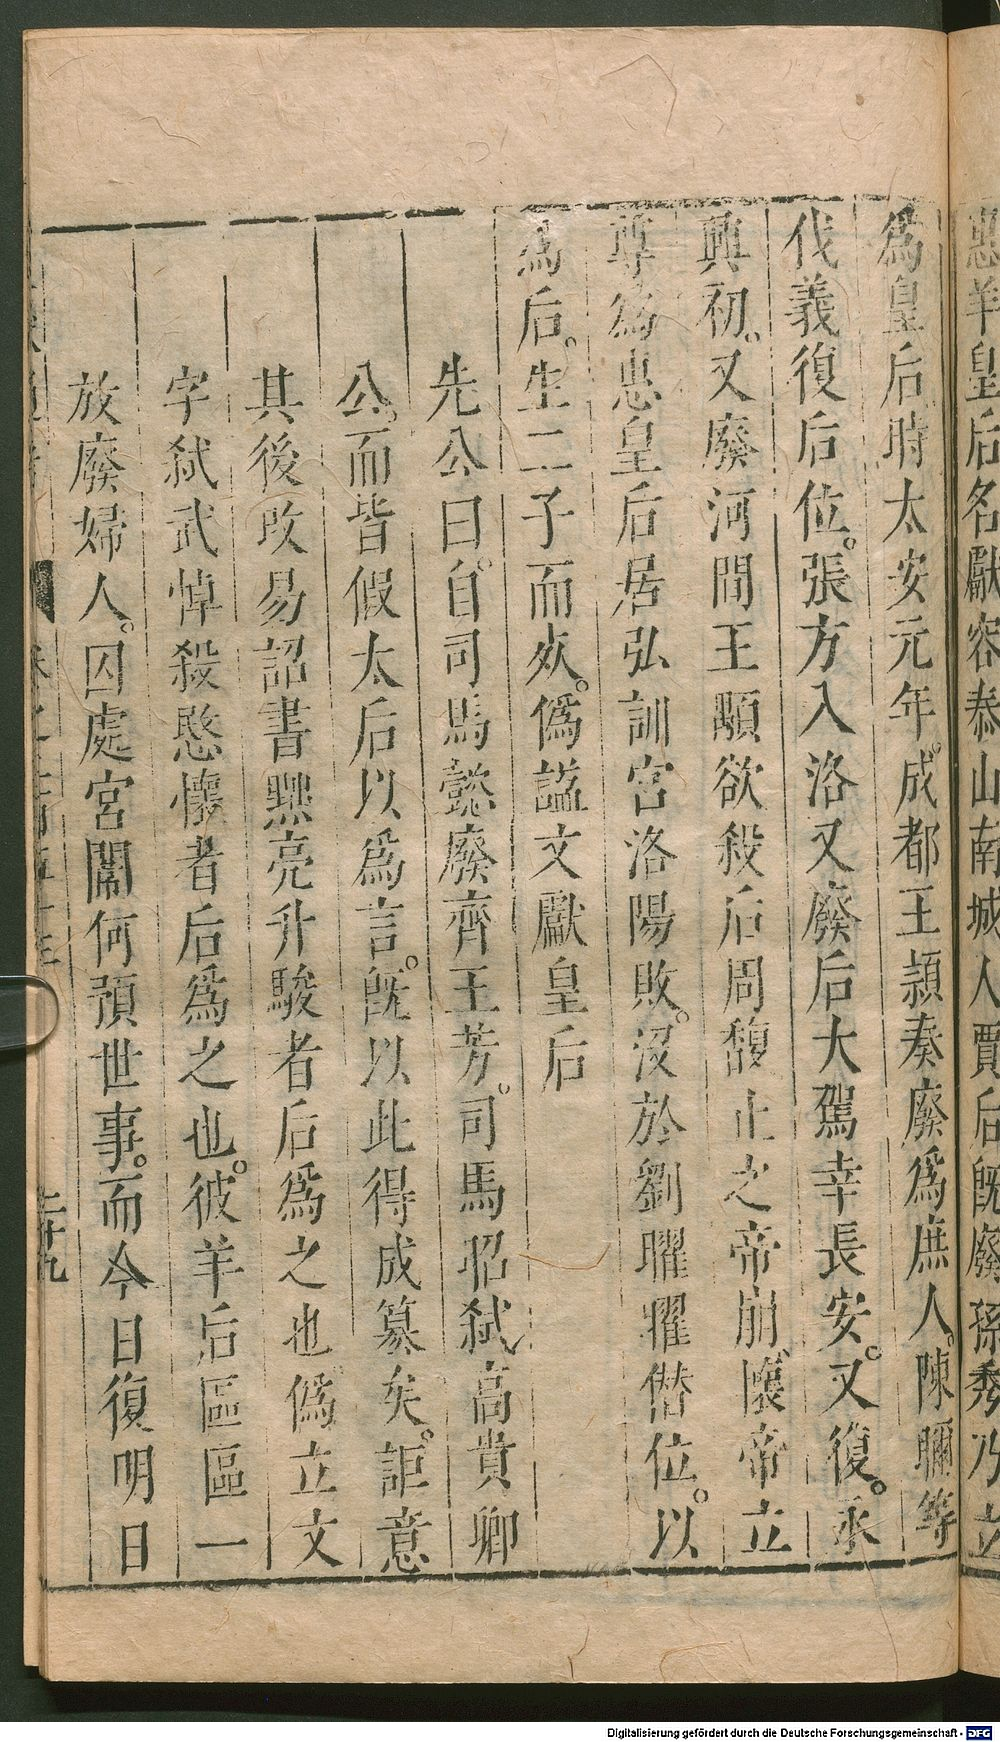 惠羊皇后名獻容泰山南城人賈后旣廢孫秀乃立
爲皇后時太安元年。成都王潁奏廢爲庶人。陳眕等
伐義復后位。張方入洛又廢后大駕幸長安。又復。永
興初。又廢河間王顒欲殺后周馥止之帝崩、懷帝立
尊爲惠皇后居弘訓宮洛陽敗。沒於劉曜曜僭位。以
爲后。生二子而死。僞諡文獻皇后
先公曰。自司馬懿廢齊王芳。司馬昭弑高貴鄉
公。而皆假太后以爲言。旣以此得成篡矣。詎意
其後改易詔書黜亮升駿者后爲之也僞立文
字弑武悼殺愍懷者后爲之也。彼羊后區區一
放廢婦人。囚處宮闈何預世事。而今日復明日
三十九
Digitalisierung gefördert durch die Deutsche Forschungsgemeinschaft - DFG